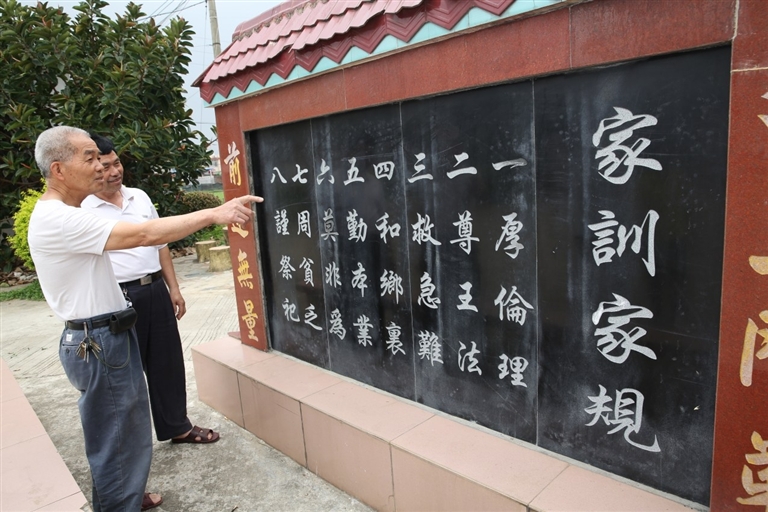 家訓家規
一厚倫理
二尊王法
三救急難
四和鄉裏
五勤本業
六莫非為
七周貧乏
八謹祭祀
前途無量